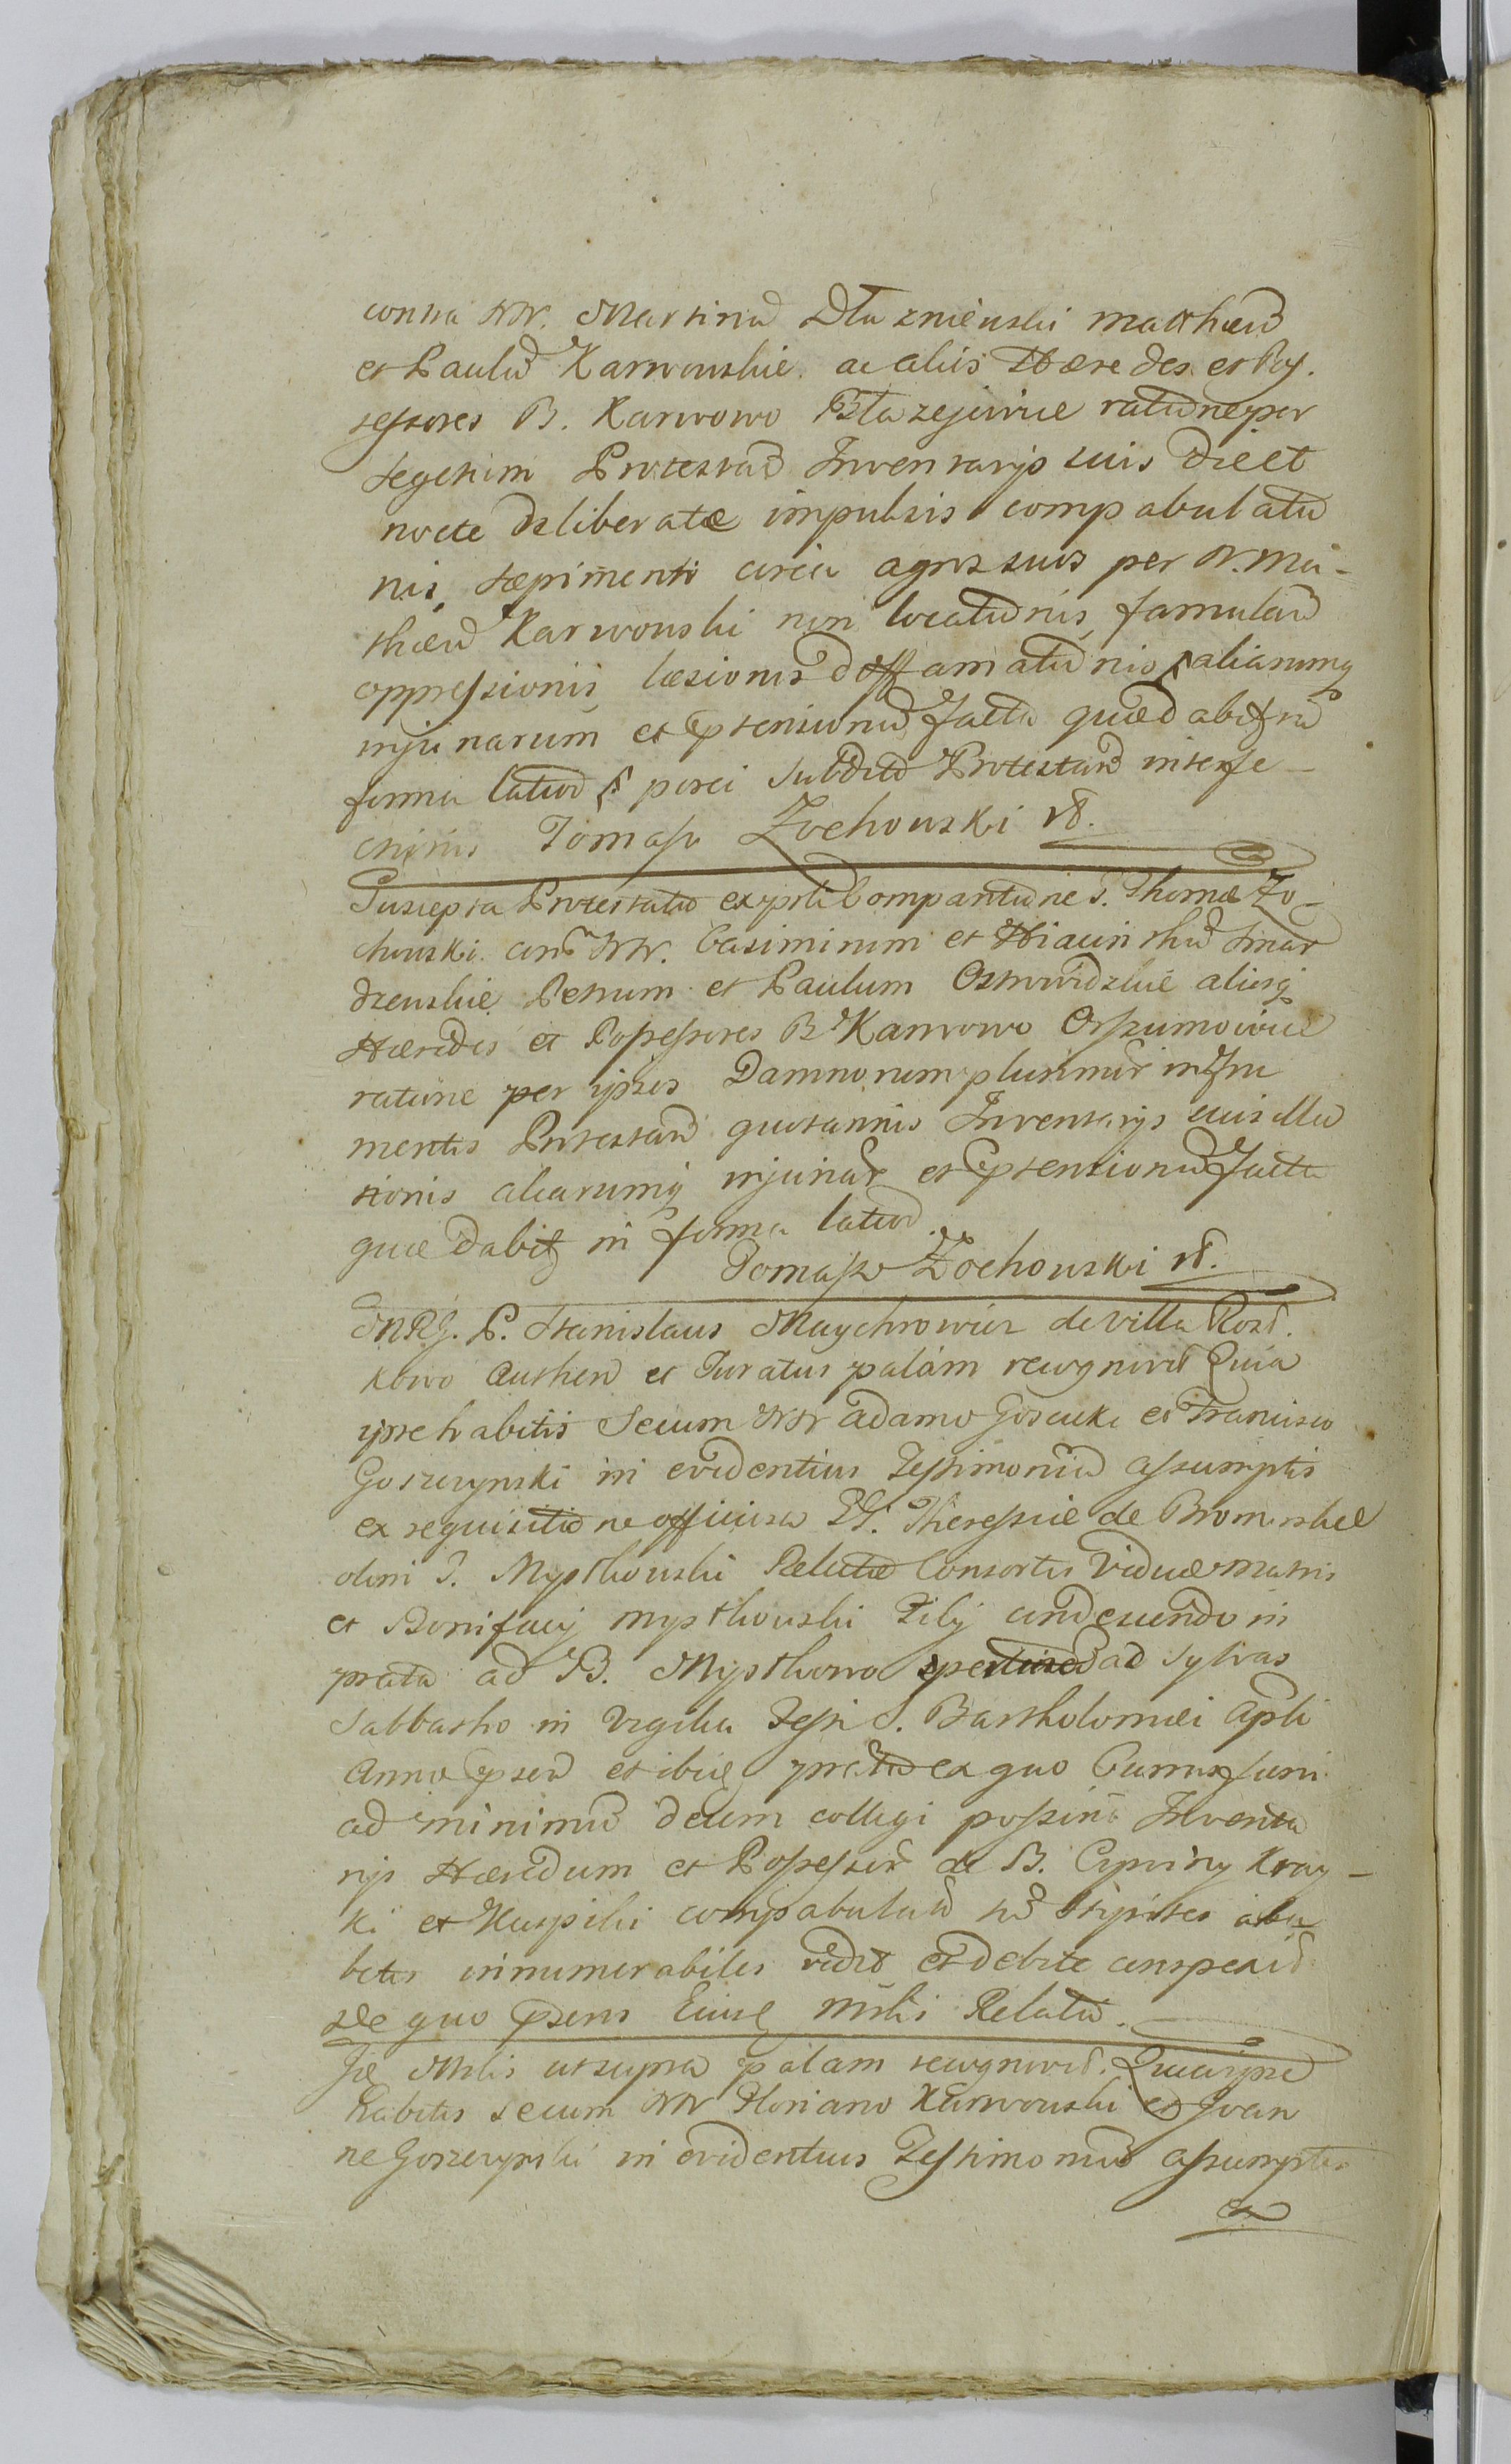 contra NN. Martinū Dłuzniewski Matthæū
et Paulū Karwowskie ac aliis Hæredes et Pos.
sessores B. Karwowo Błazejowice ratiōne per
segetum Protestan̄ Inventarijs suis die et
nocte deliberatæ impulsis compabulatio
nis, sæpimenti circa agros suos per N. Ma-
thæū Karwowski non locatiōnis, famulan̄
oppressionis læsionis deffamatiōnis, aliarumq
injuriarum et prætensionū facta quæ dabitur in
forma latiori porci Subditi Protestan̄ interfe-
ctionis Tomasz Zochowski rt.
Suscepta Protestatio ex personali Comparitiōne G. Thomæ Zo-
chowski contra NN. Casimirum et Hiacinthū Smar
dzewskie Petrum et Paulum Ostrowidzkie aliosq
Hæredes et Possessores B. Karwowo Orszumowice
ratiōne per ipsos Damnorum plurimor̄ in fru
mentis Protestan̄ quotannis Inventarijs suis illa
tionis aliarumq injuriar̄ et prætensionū facta
quæ dabitur in forma latiori.
Tomasz Zochowski rt.
MRG. P. Stanislaus Maychrowicz de villa Rost.
kowo Authen̄ et Juratus palam recognovit Quia
ipse habitis secum NN Adamo Gosicki et Francisco
Goszczynski in evidentius Testimoniū assumptis
ex requisitiōne officiosa G. Theressiæ de Brominskie
olim G. Mysłkowski Relictæ Consortis Viduæ Matris
et Bonifacij Mysłkowski Filij condescendendo in
prata ad B. Mysłkowo ad sylvas
Sabbatho in Vigilia Festi S. Bartholomæi Apli
Anno præsen̄ et ibiq pratū ex quo Currus fæni
ad minimū decem collegi possint Inventa
rijs Hæredum et Possessor̄ de B. Cyprynÿ Kray-
ki et Karpiki compabulatū stipites
innumerabiles vidit et debite conspexit
de quo præsens Eiusq mihi Relatio.
Id. Mnlis ut supra palam recognovit. Quia ipse
habitis secum NN Floriano Karwowski et Joan
ne Goszczynski in evidentius Testimoniū assumptis
ex